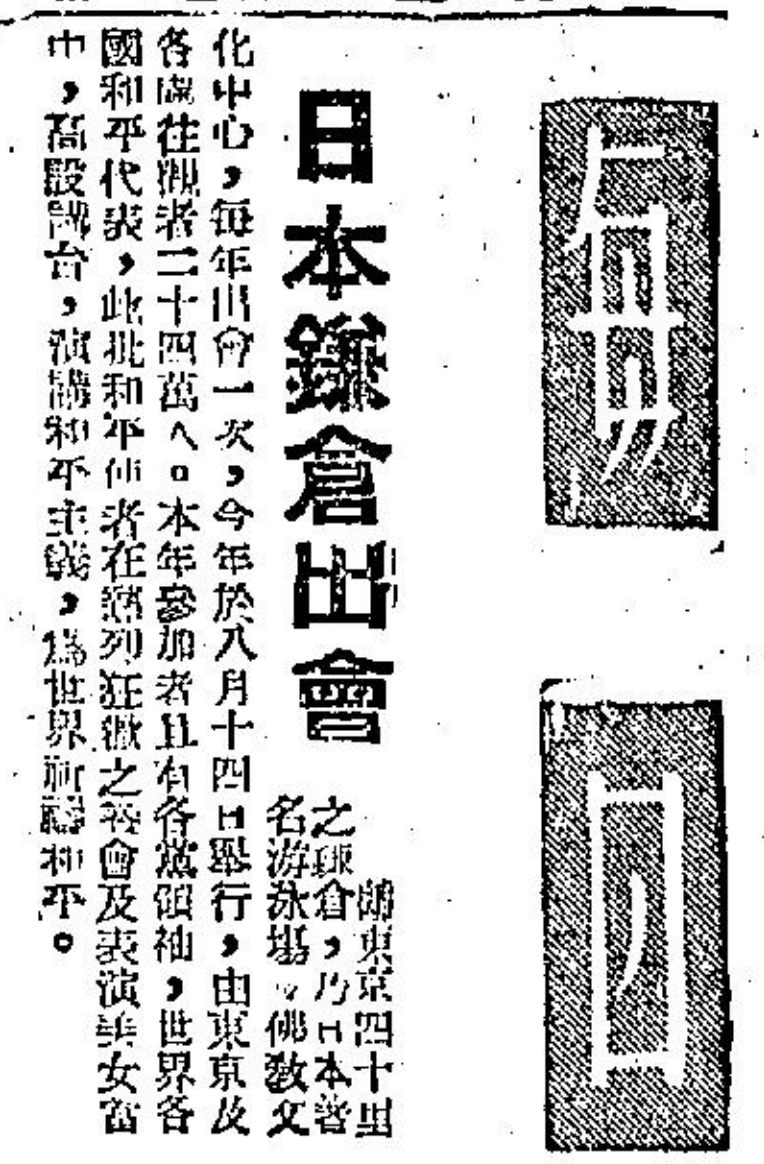 每日
日本鎌倉出會
東京四十里
之鎌倉，乃日本著
名游泳場，佛教文
化中心，每年出會一次，今年於八月十四日舉行，由東京及
各處往觀者二十四萬人。本年參加者且有各黨領袖，世界各
國和平代表，此批和平使者在熱列狂歡之會及表演美女富
中，高設講台，演講和平主義，為世界祈禱和平。